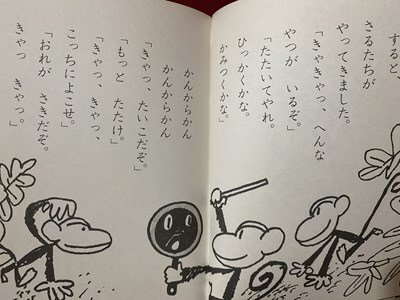 すると、
さるたちが
やってきました。
「きゃきゃっ、へんな
やつが いるぞ。」
「たたいてやれ。
ひっかくかな。
かみつくかな。」
かんからかん
かんからかん
「きゃっ、たいこだぞ。」
「もっと たたけ。」
「きゃっ、きゃっ、
こっちによこせ。」
「おれが さきだぞ。
きゃっ きゃっ。」